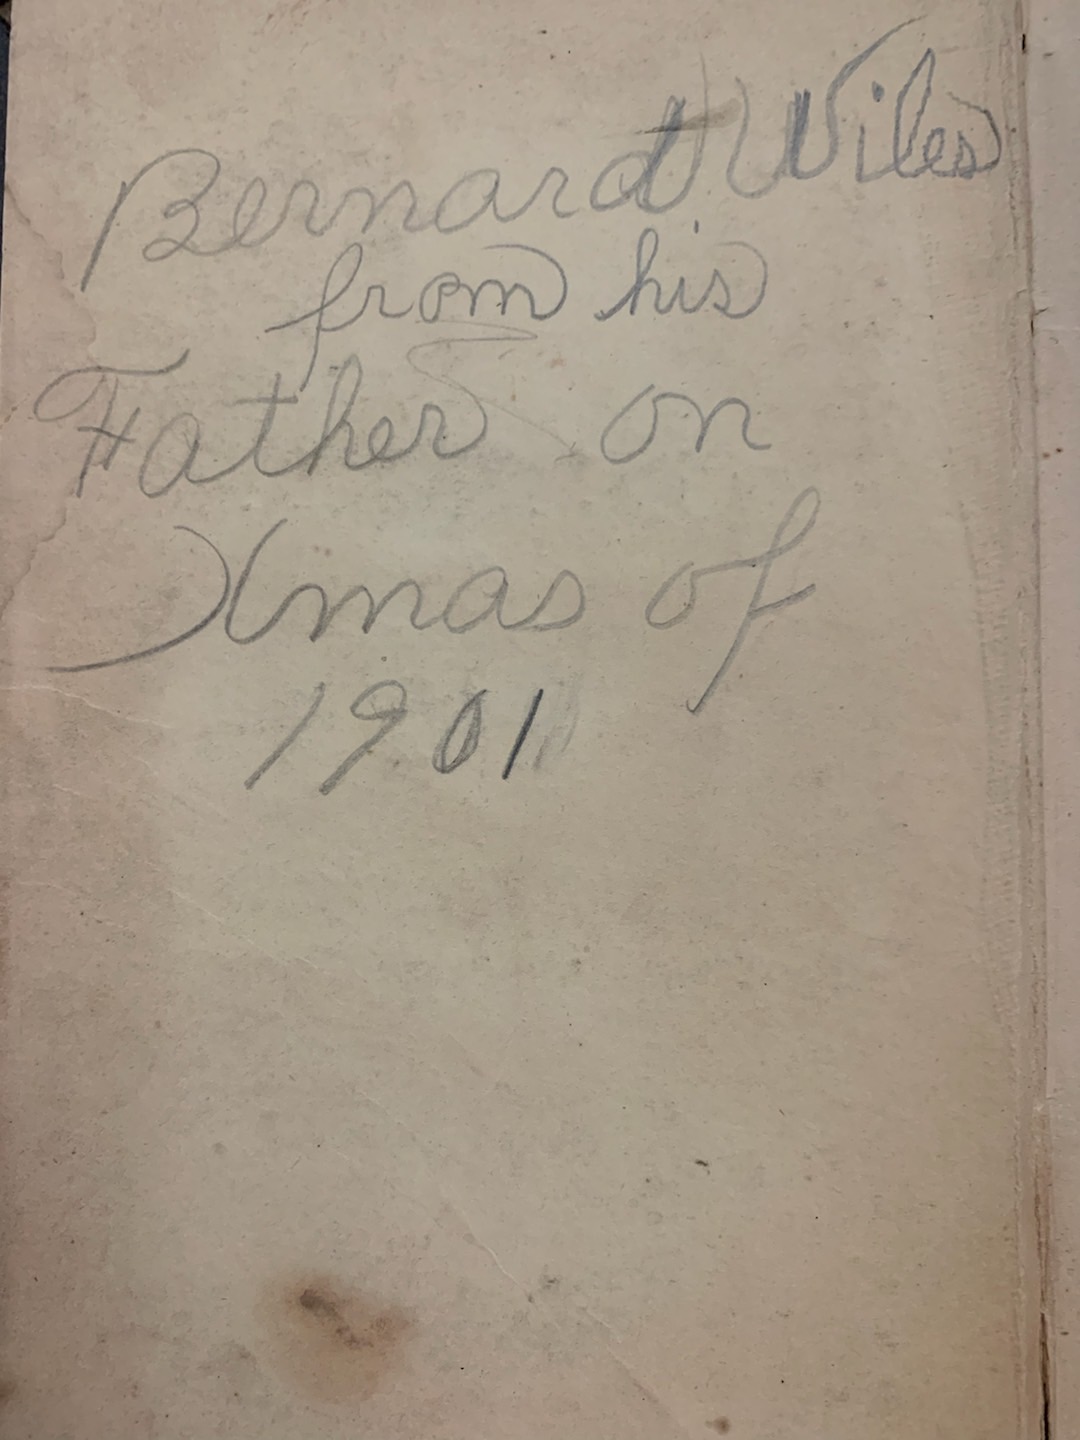 Bernard Wiles
from his
Father on
Xmas of
1901